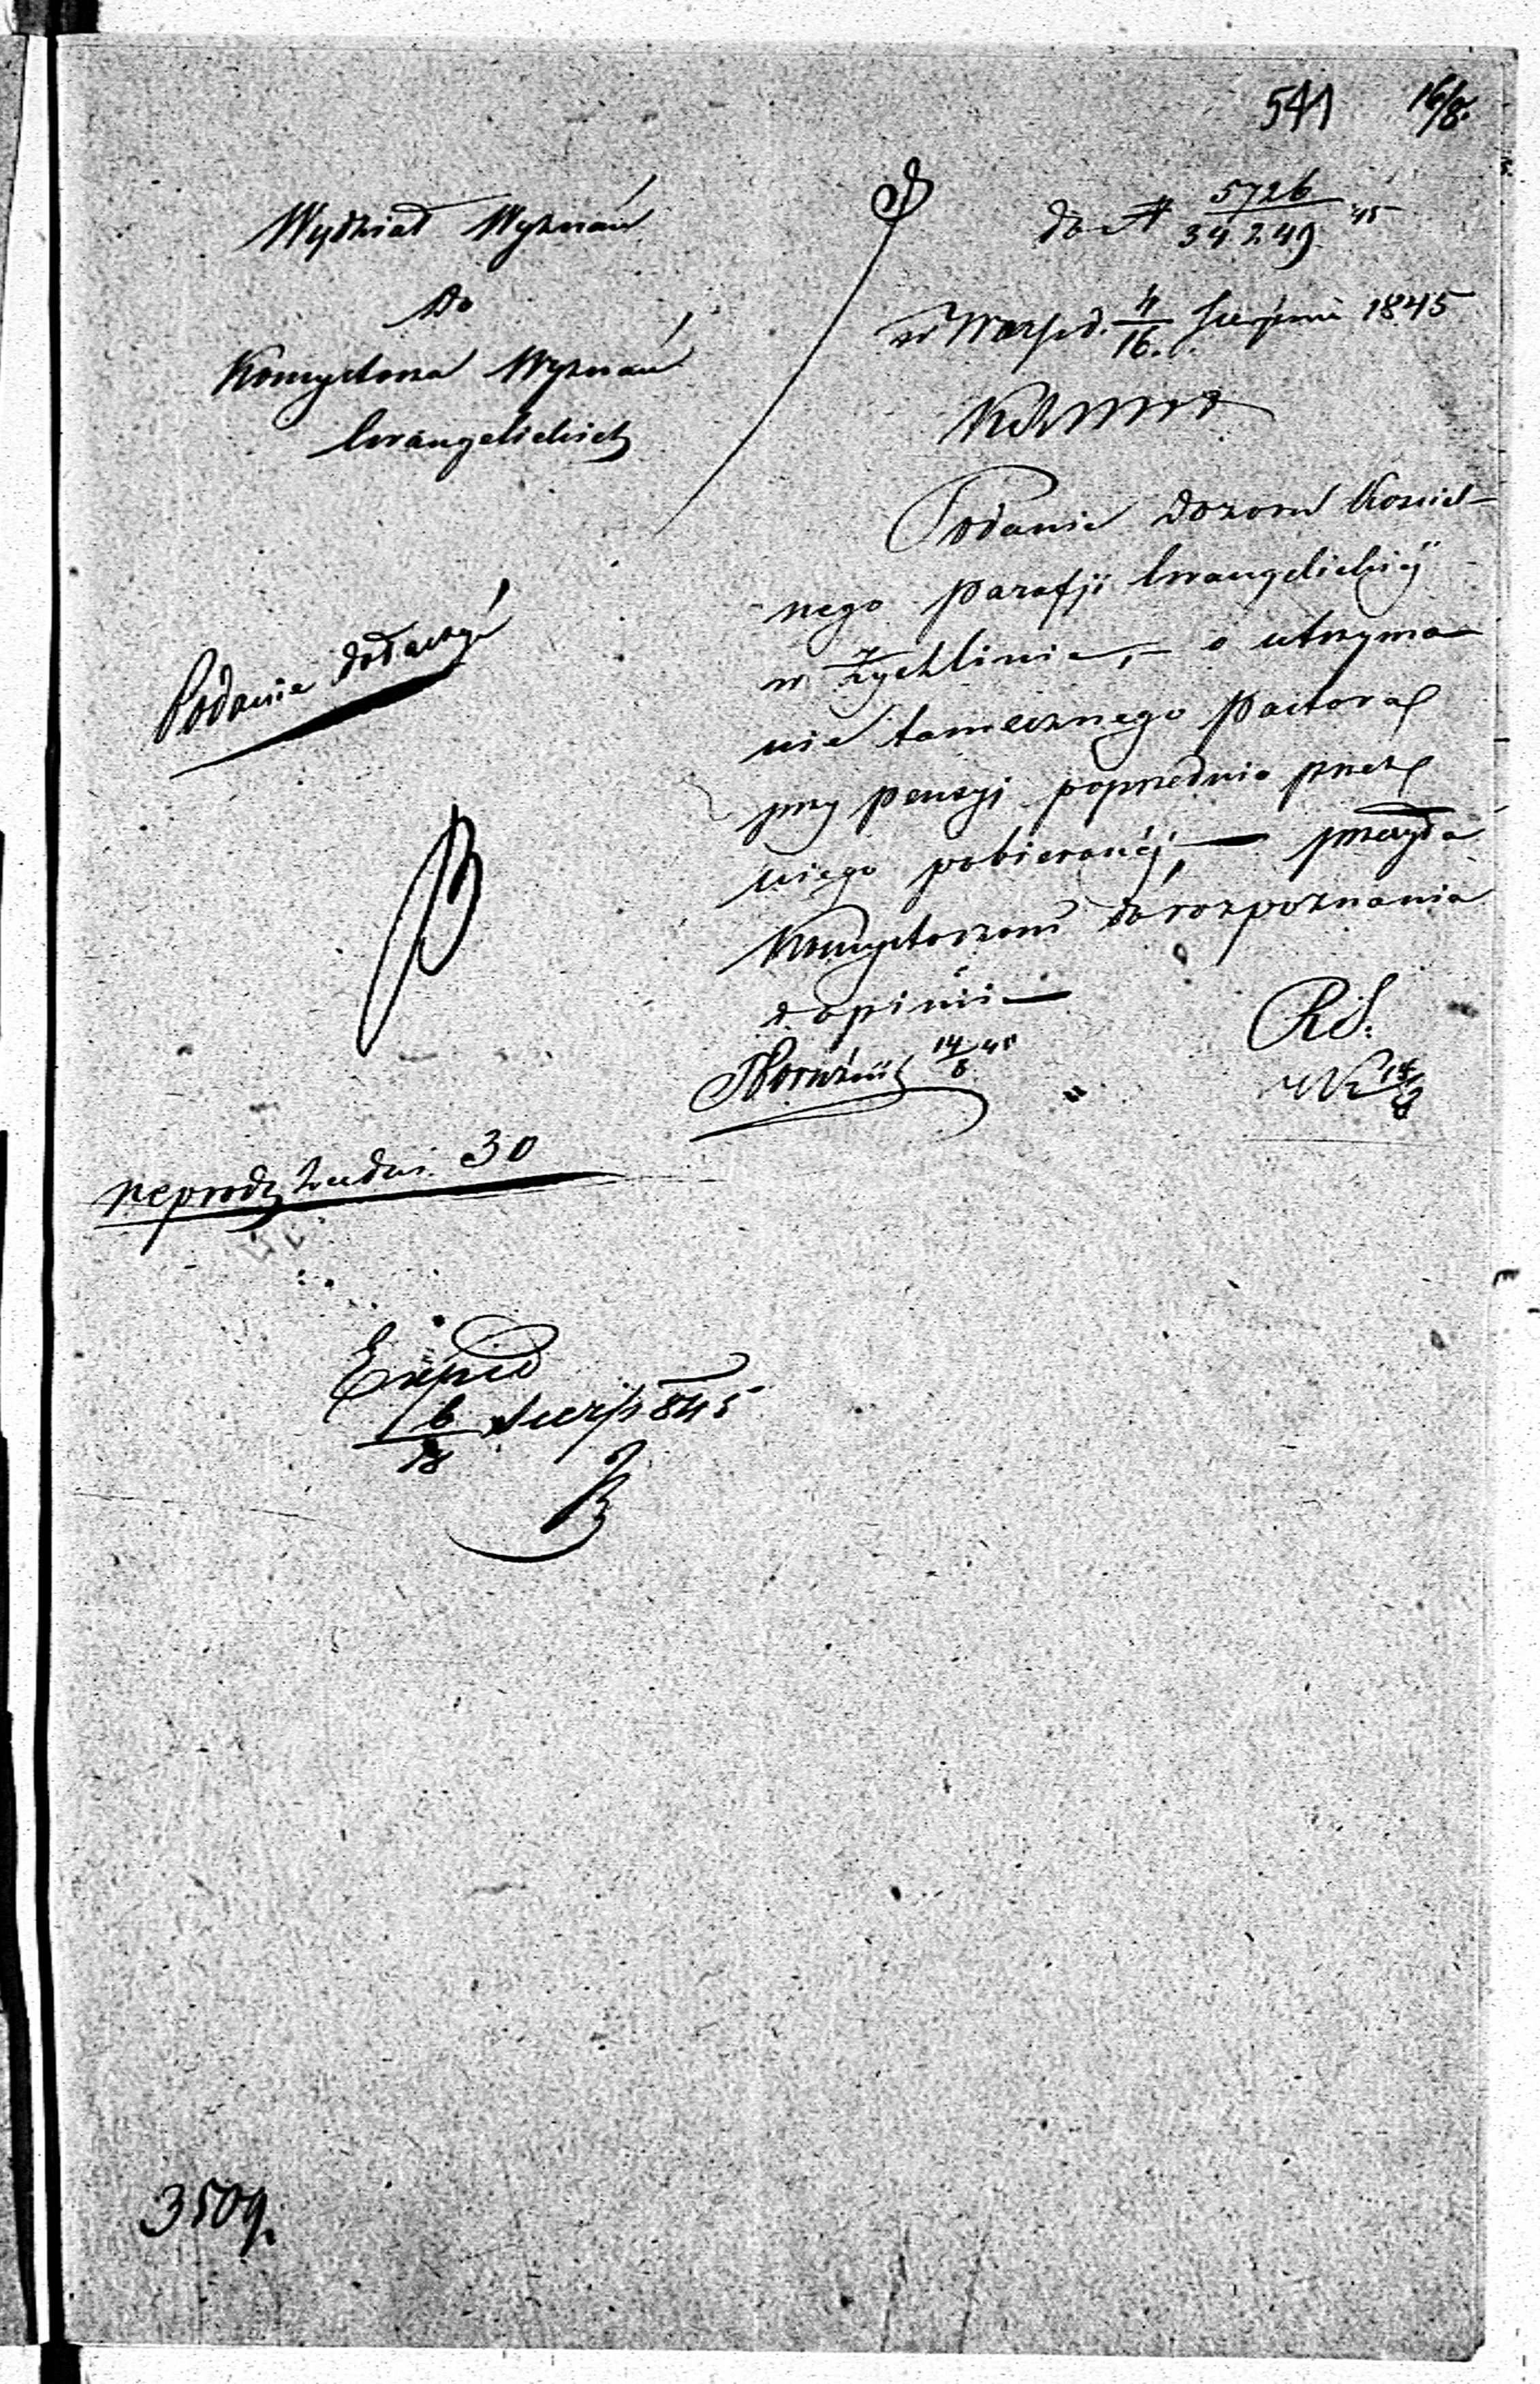 541 16/8.
Wydział Wyznań
Do
Konsystorza Wyznań
Ewangelickich
do № 5726/34249 45
w Warsz d. 4/16. Sierpnia 1845
Podanie dozoru Kościel-
nego parafji Ewangelickiéj
w Żychlinie, – o utrzyma-
nie tamecznego Pastora
przy pensyi poprzednio przez
niego pobieranéj, — przesyła
Konsystorzowi do rozpoznania
i opinii —
14/8 45
RS.
Podanie dołączyć
reprod. za dni 30
Exped
6/18 Sierp 845
3509.